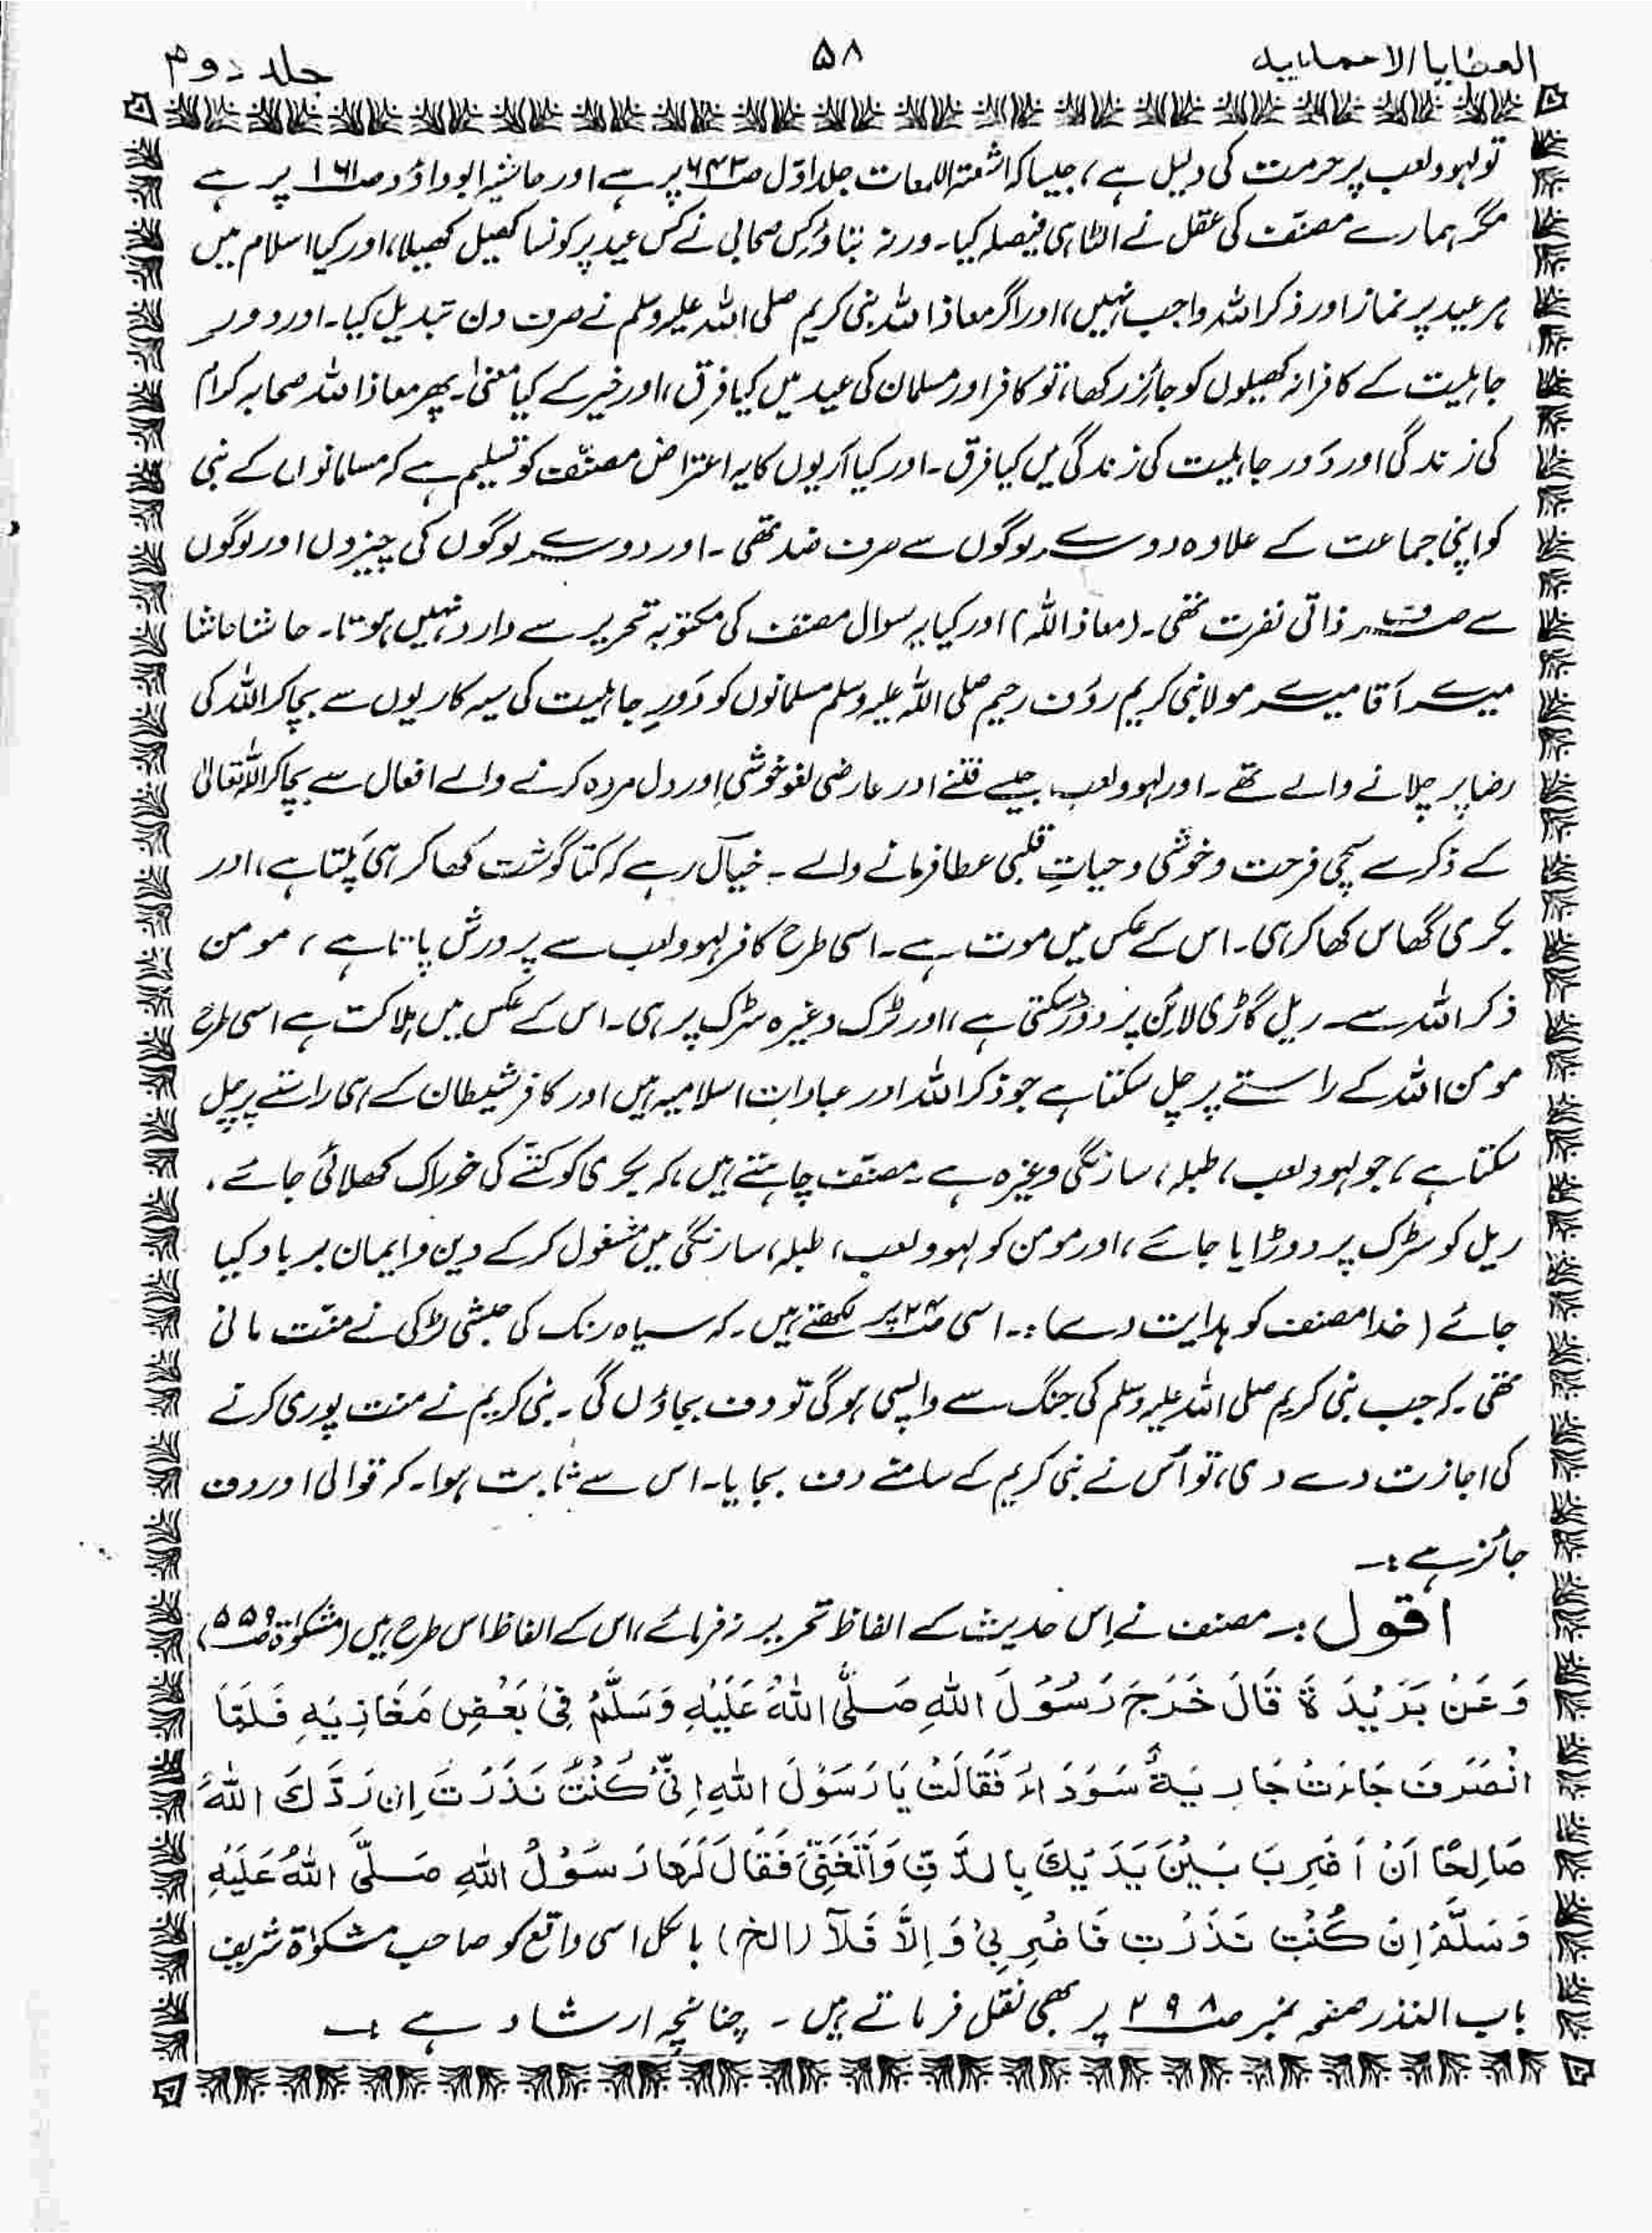 العطایا الاحمدیہ ۵۸ جلد دوم
تو لہو ولعب پر حرمت کی دلیل ہے، جیسا کہ اشعۃ اللمعات جلد اوّل صـ۶۴۳ پر ہے اور حاشیہ ابو داؤد صـ۱۶۱ پر ہے
مگر ہمارے مصنّف کی عقل نے الٹا ہی فیصلہ کیا۔ ورنہ بتاؤ کس صحابی نے کس عید پر کونسا کھیل کھیلا، اور کیا اسلام میں
ہر عید پر نماز اور ذکر اللہ واجب نہیں، اور اگر معاذ اللہ نبی کریم صلی اللہ علیہ وسلم نے صرف دن تبدیل کیا۔ اور دورِ
جاہلیت کے کافرانہ کھیلوں کو جائز رکھا، تو کافر اور مسلمان کی عید میں کیا فرق، اور خیر کے کیا معنیٰ۔ پھر معاذ اللہ صحابہ کرام
کی زندگی اور دَور جاہلیت کی زندگی میں کیا فرق۔ اور کیا آریوں کا یہ اعتراض مصنّف کو تسلیم ہے کہ مسلمانوں کے نبی
کو اپنی جماعت کے علاوہ دوسرے لوگوں سے صرف ضد تھی۔ اور دوسرے لوگوں کی چیزوں اور لوگوں
سے صرف ذاتی نفرت تھی۔ (معاذ اللہ) اور کیا یہ سوال مصنف کی مکتوبہ تحریر سے وارد نہیں ہوتا۔ حاشا حاشا
میرے آقا میرے مولا نبی کریم رؤف رحیم صلی اللہ علیہ وسلم مسلمانوں کو دَورِ جاہلیت کی سیہ کاریوں سے بچا کر اللہ کی
رضا پر چلانے والے تھے۔ اور لہو ولعب جیسے فتنے اور عارضی لغو خوشی اور دل مردہ کرنے والے افعال سے بچا کر اللہ تعالیٰ
کے ذکر سے سچی فرحت و خوشی و حیاتِ قلبی عطا فرمانے والے۔ خیال رہے کہ کتا گوشت کھا کر ہی پلتا ہے، اور
بکری گھاس کھا کر ہی۔ اس کے عکس میں موت ہے۔ اسی طرح کافر لہو ولعب سے پرورش پاتا ہے، مومن
ذکر اللہ سے۔ ریل گاڑی لائن پر دوڑ سکتی ہے، اور ٹرک وغیرہ سڑک پر ہی۔ اس کے عکس میں ہلاکت ہے اسی طرح
مومن اللہ کے راستے پر چل سکتا ہے جو ذکر اللہ اور عباداتِ اسلامیہ ہیں اور کافر شیطان کے ہی راستے پر چل
سکتا ہے، جو لہو ولعب، طبلہ، سازنگی وغیرہ ہے۔ مصنّف چاہتے ہیں، کہ بکری کو کتّے کی خوراک کھلائی جائے،
ریل کو سڑک پر دوڑایا جائے، اور مومن کو لہو ولعب، طبلہ، سارنگی میں مشغول کر کے دین و ایمان برباد کیا
جائے (خدا مصنف کو ہدایت دے)۔ اسی صـ۲۴ پر لکھتے ہیں۔ کہ سیاہ رنگ کی حبشی لڑکی نے منّت مانی
تھی۔ کہ جب نبی کریم صلی اللہ علیہ وسلم کی جنگ سے واپسی ہوگی تو دف بجاؤں گی۔ نبی کریم نے منت پوری کرنے
کی اجازت دے دی، تو اُس نے نبی کریم کے سامنے دف بجایا۔ اس سے ثابت ہوا۔ کہ قوالی اور دف
جائز ہے:۔
اقول:۔ مصنف نے اِس حدیث کے الفاظ تحریر نہ فرمائے، اس کے الفاظ اس طرح ہیں (مشکوٰۃ صـ۵۵۹)
وَعَنْ بَرَیْدَۃَ قَالَ خَرَجَ رَسُوْلَ اللہِ صَلَّی اللہُ عَلَیْہِ وَسَلَّمْ فِیْ بَعْضِ مَغَازِیْہِ فَلَمَّا
انْصَرَفَ جَاءَتْ جَارِیَۃٌ سَوْدَاءُ فَقَالَتْ یَا رَسُوْلَ اللہِ اِنِّیْ کُنْتُ نَذَرْتُ اِنْ رَدَّکَ اللہُ
صَالِحًا اَنْ اَضْرِبَ بَیْنَ یَدَیْکَ بِالدَّفِّ وَاَتَغَنّٰی فَقَالَ لَہَا رَسُوْلُ اللہِ صَلَّی اللہُ عَلَیْہِ
وَسَلَّمَ اِنْ کُنْتِ نَذَرْتِ فَاضْرِبِیْ وَاِلَّا فَلَآ (الخ) بالکل اسی واقع کو صاحبِ مشکوٰۃ شریف
باب النذر صفحہ نمبر صـ۲۹۸ پر بھی نقل فرماتے ہیں۔ چنانچہ ارشاد ہے:۔